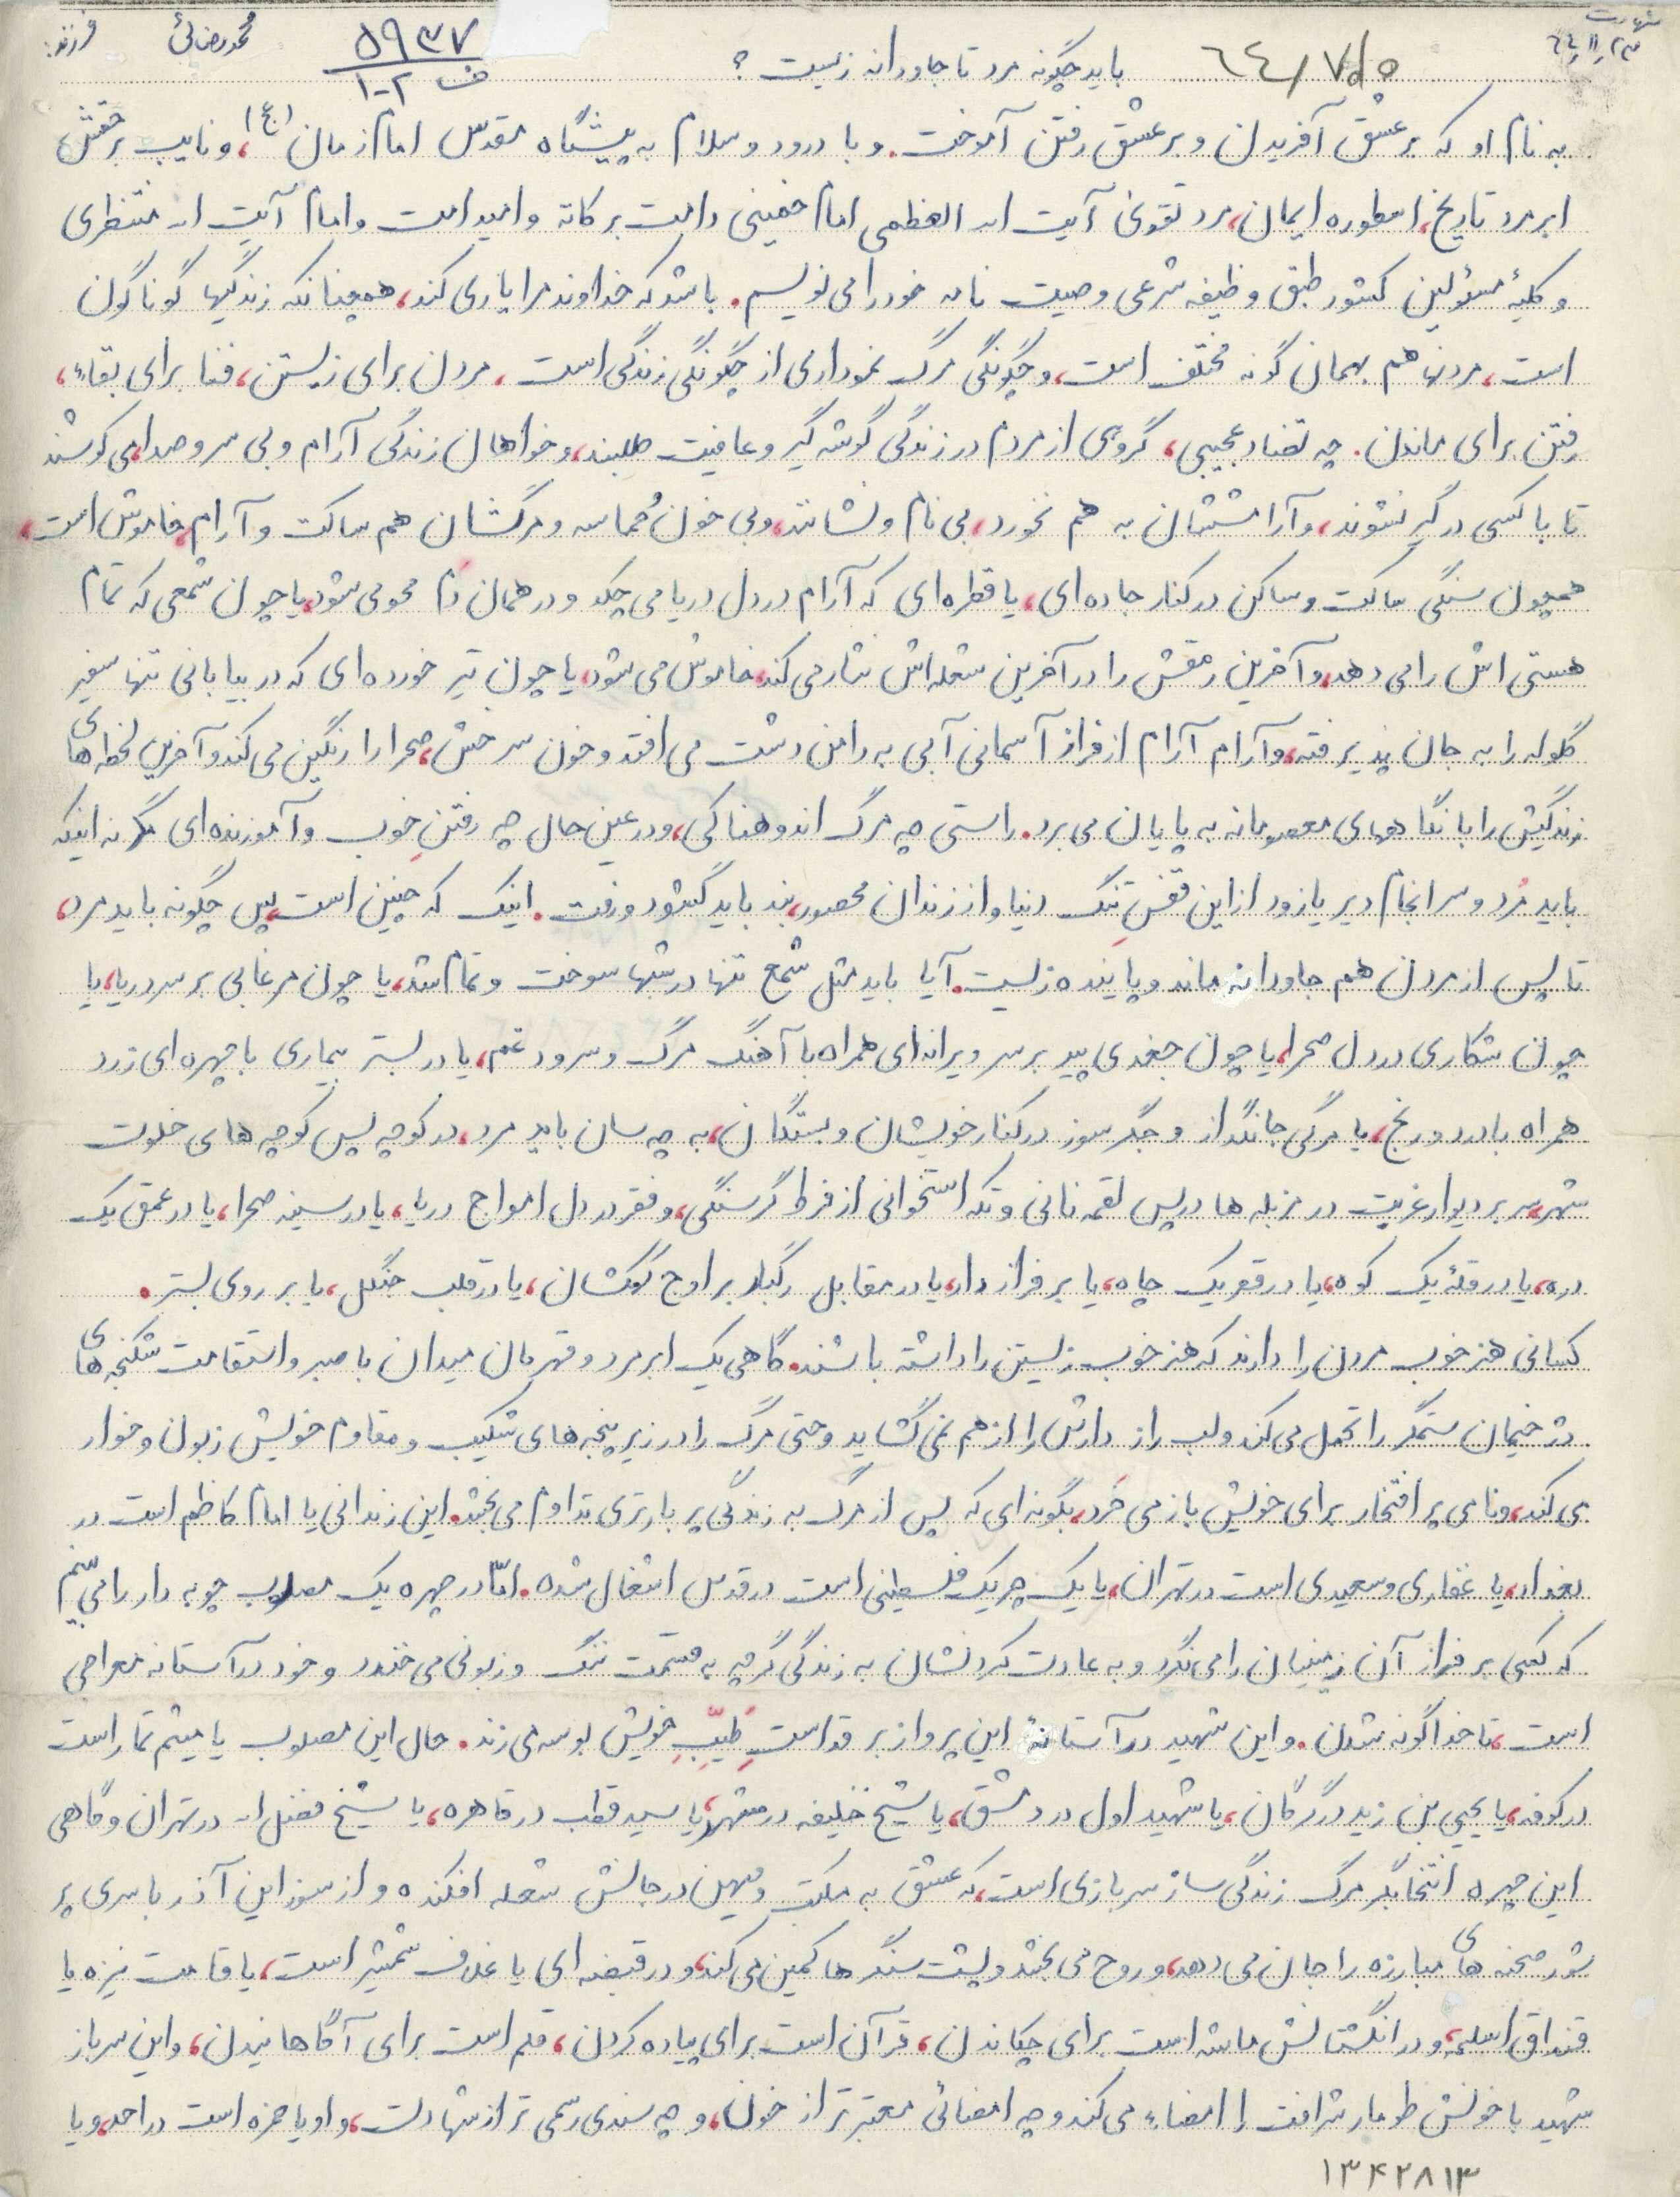 شهادت
۶۴/۱۱/۲۳
باید چگونه مرد تا جاودانه زیست ؟ ۶۴/۷/۵ ۵۹۳۷ ف ۲-۱ محمد رضائی فرزند:
به نام او که بر عشق آفریدن و بر عشق رفتن آموخت. و با درود و سلام به پیشگاه مقدس امام زمان (عج)، و نایب برحقش
ابرمرد تاریخ، اسطوره ایمان، مرد تقوی آیت اله العظمی امام خمینی دامت برکاته و امید امت و امام آیت اله منتظری
و کلیهٔ مسئولین کشور طبق وظیفه شرعی وصیت نامه خود را می نویسم. باشد که خداوند مرا یاری کند، همچنانکه زندگیها گوناگون
است، مردنها هم بهمان گونه مختلف است، و چگونگی مرگ نموداری از چگونگی زندگی است، مردن برای زیستن، فنا برای بقاء،
رفتن برای ماندن. چه تضاد عجیبی، گروهی از مردم در زندگی گوشه گیر و عافیت طلبند، و خواهان زندگی آرام و بی سر و صدا، می کوشند
تا با کسی درگیر نشوند، و آرامششان به هم نخورد، بی نام و نشانند، و بی خون و حماسه و مرگشان هم ساکت و آرام، خاموش است،
همچون سنگی ساکت و ساکن در کنار جاده ای، یا قطره ای که آرام در دل دریا می چکد و در همان دَم محو می شود، یا چون شمعی که تمام
هستی اش را می دهد، و آخرین رمقش را در آخرین شعله اش نثار می کند، خاموش می شود، یا چون تیر خورده ای که در بیابانی تنها سفیر
گلوله را به جان پذیرفته، و آرام آرام از فراز آسمانی آبی به دامن دشت می افتد و خون سرخش، صحرا را رنگین می کند و آخرین لحظه های
زندگیش را با نگاههای معصومانه به پایان می برد. راستی چه مرگ اندوهناکی، و در عین حال چه رفتنِ خوب و آموزنده ای مگر نه اینکه
باید مُرد و سرانجام دیر یا زود از این قفسِ تنگ دنیا و از زندان محصور، بند باید گشود و رفت. اینک که چنین است، پس چگونه باید مرد،
تا پس از مردن هم جاودانه ماند و پاینده زیست. آیا باید مثل شمع تنها در شبها سوخت و تمام شد، یا چون مرغابی بر سر دریا، یا
چون شکاری در دل صحرا، یا چون جغدی پیر بر سر ویرانه ای همراه با آهنگ مرگ و سرود غم، یا در بستر بیماری با چهره ای زرد
همراه با درد و رنج، یا مرگی جانگداز و جگرسوز در کنار خویشان و بستگان، به چه سان باید مرد، در کوچه پس کوچه های خلوت
شهر، سر بر دیوار غربت در مزبله ها در پس لقمه نانی و تکه استخوانی از فرط گرسنگی، و فقر در دل امواج دریا، یا در سینه صحرا، یا در عمق یک
دره، یا در قلهٔ یک کوه، یا در قعر یک چاه، یا بر فراز دار، یا در مقابل رگبار بر اوج کهکشان، یا در قلب جنگل، یا بر روی بستر.
کسانی هنر خوب مردن را دارند که هنر خوب زیستن را داشته باشند. گاهی یک ابرمرد و قهرمان میدان با صبر و استقامت شکنجه های
دژخیمان ستمگر را تحمل می کند و لب رازدارش را از هم نمی گشاید و حتی مرگ را در زیر پنجه های شکیب و مقاوم خویش زبون و خوار
می کند، و نامی پر افتخار برای خویش باز می خَرد، بگونه ای که پس از مرگ به زندگی پربارتری تداوم می بخشد. این زندانی یا امام کاظم است در
بغداد، یا غفاری و سعیدی است در تهران، یا یک چریک فلسطینی است در قدس اشغال شده. امّا در چهره یک مصلوب چوبه دار را می بینم
که کسی بر فراز آن زمینیان را می نگرد و به عادت کردنشان به زندگی گرچه به قیمت ننگ و زبونی می خندد و خود در آستانه معراجی
است، تا خداگونه شدن. و این شهید در آستانهٔ این پرواز بر قداستِ طیّبِ خویش بوسه می زند. حال این مصلوب یا میثم تمار است
در کوفه، یا یحیی بن زید در گرگان، یا شهید اول در دمشق، یا شیخ خلیفه در مشهد، یا سید قطب در قاهره، یا شیخ فضل اله در تهران و گاهی
این چهره انتخابگر مرگ زندگی ساز سربازی است، که عشق به مکتب و میهن در جانش شعله افکنده و از سوز این آذر با سری پر
شور صحنه های مبارزه را جان می دهد، و روح می بخشد و پشت سنگرها کمین می کند، و در قبضه ای یا غلاف شمشیر است، یا قامت نیزه یا
قنداق اسلحه، و در انگشتانش ماشه است برای چکاندن، قرآن است برای پیاده کردن، قلم است برای آگاهانیدن، و این سرباز
شهید با خونش طومار شرافت را امضاء می کند و چه امضائی معتبرتر از خون، و چه سندی رسمی تر از شهادت، و او یا حمزه است در احد، و یا
۱۳۴۲۸۱۳